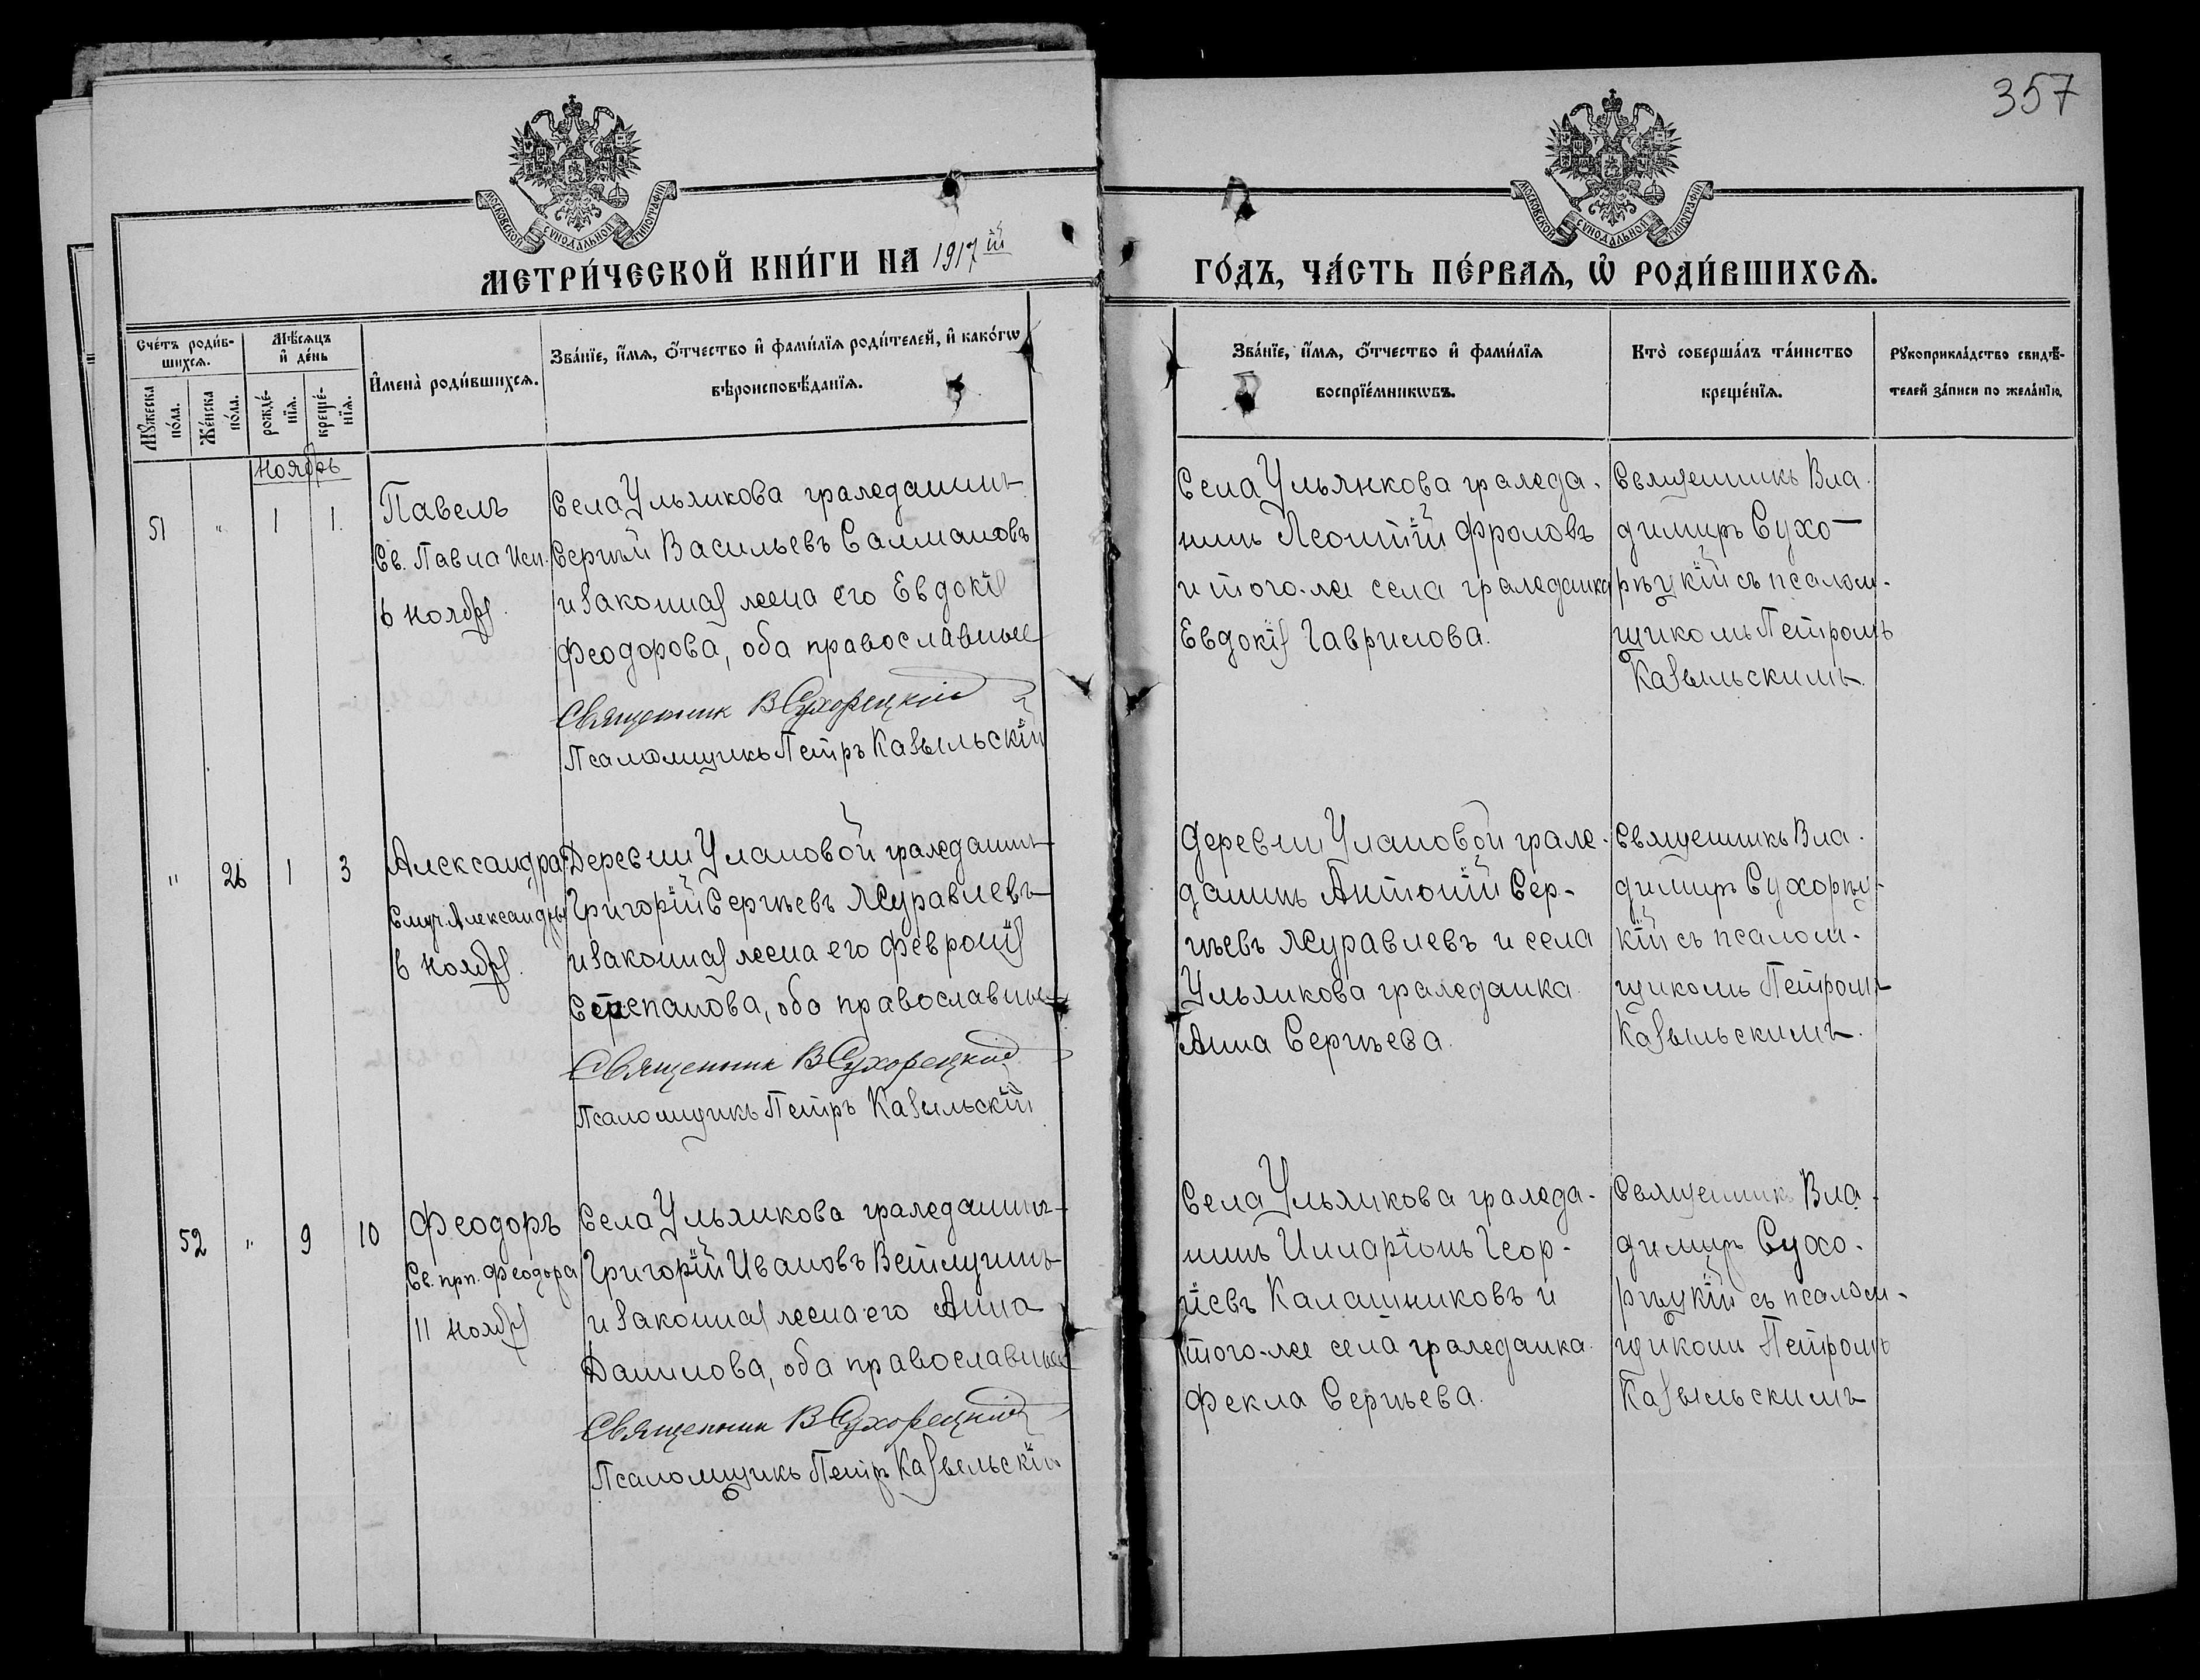 357
МОСКОВСКОЙ СѴНОДАЛЬНОЙ ТИПОГРАФІИ
МОСКОВСКОЙ СѴНОДАЛЬНОЙ ТИПОГРАФІИ
МЕТРИ́ЧЕСКОЙ КНИ́ГИ НА 1917й
ГО́ДЪ, ЧА́СТЬ ПЕ́РВАѦ, Ѽ РОДИ́ВШИХСѦ.
Сче́тъ роди́в-
шихсѧ.
Мꙋ́жеска
по́ла.
Же́нска
по́ла.
Мѣ́сѧцъ
и҆ де́нь
рожде́-
нїѧ.
креще́-
нїѧ.
И҆мена̀ роди́вшихсѧ.
Зва́нїе, и҆́мѧ, ѻ҆́тчество и҆ фами́лїѧ роди́телей, и҆ како́гѡ
вѣроисповѣ́данїѧ.
Зва́нїе, и҆́мѧ, ѻ҆́тчество и҆ фами́лїѧ
воспрїе́мникѡвъ.
Кто̀ соверша́лъ та́инство
креще́нїѧ.
Рꙋкоприкла́дство свидѣ́-
телей за́писи по жела́нїю.
Ноябрь
51 " 1 1.
Павелъ
Св. Павла Исп.
6 Ноября.
Села Ульянкова гражданинъ
Сергѣй Васильевъ Салмановъ
и законная жена его Евдокія
Феодорова, оба православные
Священник В Сухорецкій
Псаломщикъ Петръ Казыльскій
Села Ульянкова гражда-
нинъ Леонтій Фроловъ
и того-же села гражданка
Евдокія Гаврилова.
Священникъ Вла-
димиръ Сухо-
рѣцкій съ псалом-
щикомъ Петромъ
Казыльскимъ.
" 26 1 3
Александра
Св. муч. Александры
6 Ноября.
Деревни Улановой гражданинъ
Григорій Сергѣевъ Журавлевъ
и законная жена его Февронія
Степанова, оба православные
Священник В Сухорецкій
Псаломщикъ Петръ Казыльскій
Деревни Улановой граж-
данинъ Антоній Сер-
гѣевъ Журавлевъ и села
Ульянкова гражданка
Анна Сергѣева.
Священникъ Вла-
димиръ Сухорѣц-
кій съ псалом-
щикомъ Петромъ
Казыльскимъ.
52 " 9 10
Феодоръ
Св. прп. Феодора
11 Ноября
Села Ульянкова гражданинъ
Григорій Ивановъ Ветлугинъ
и законная жена его Анна
Данилова, оба православные
Священник В Сухорецкій
Псаломщикъ Петръ Казыльскій
Села Ульянкова гражда-
нинъ Илларіонъ Геор-
гіевъ Калашниковъ и
того-же села гражданка
Фекла Сергѣева.
Священникъ Вла-
димиръ Сухо-
рѣцкій съ псалом-
щикомъ Петромъ
Казыльскимъ